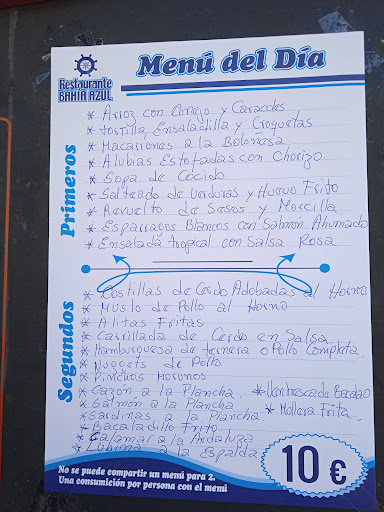 Restaurante
BAHIA AZUL
Menú del Día
Primeros
* Arroz con Conejo y Caracoles
* tortilla, Ensaladilla y Croquetas
* Macarrones a la Boloñesa
* Alubias Estofadas con Chorizo
* Sopa de Cocido
* Salteado de Verduras y Huevo Frito
* Revuelto de Sesos y Morcilla
* Esparragos Blancos con Salmón Ahumado
* Ensalada tropical con Salsa Rosa
Segundos
* Costillas de Cerdo Adobadas al Horno
* Muslo de Pollo al Horno
* Alitas Fritas
* Carrillada de Cerdo en Salsa
* Hamburguesa de ternera o Pollo Completa
* Nuggets de Pollo
* Pinchos Morunos
* Cazón a la Plancha * Ventresca de Bacalao
* Salmón a la Plancha * Mollera Frita
* Sardinas a la Plancha
* Bacaladillo Frito
* Calamar a la Andaluza
* Lubina a la Espalda
No se puede compartir un menú para 2.
Una consumición por persona con el menú
10 €